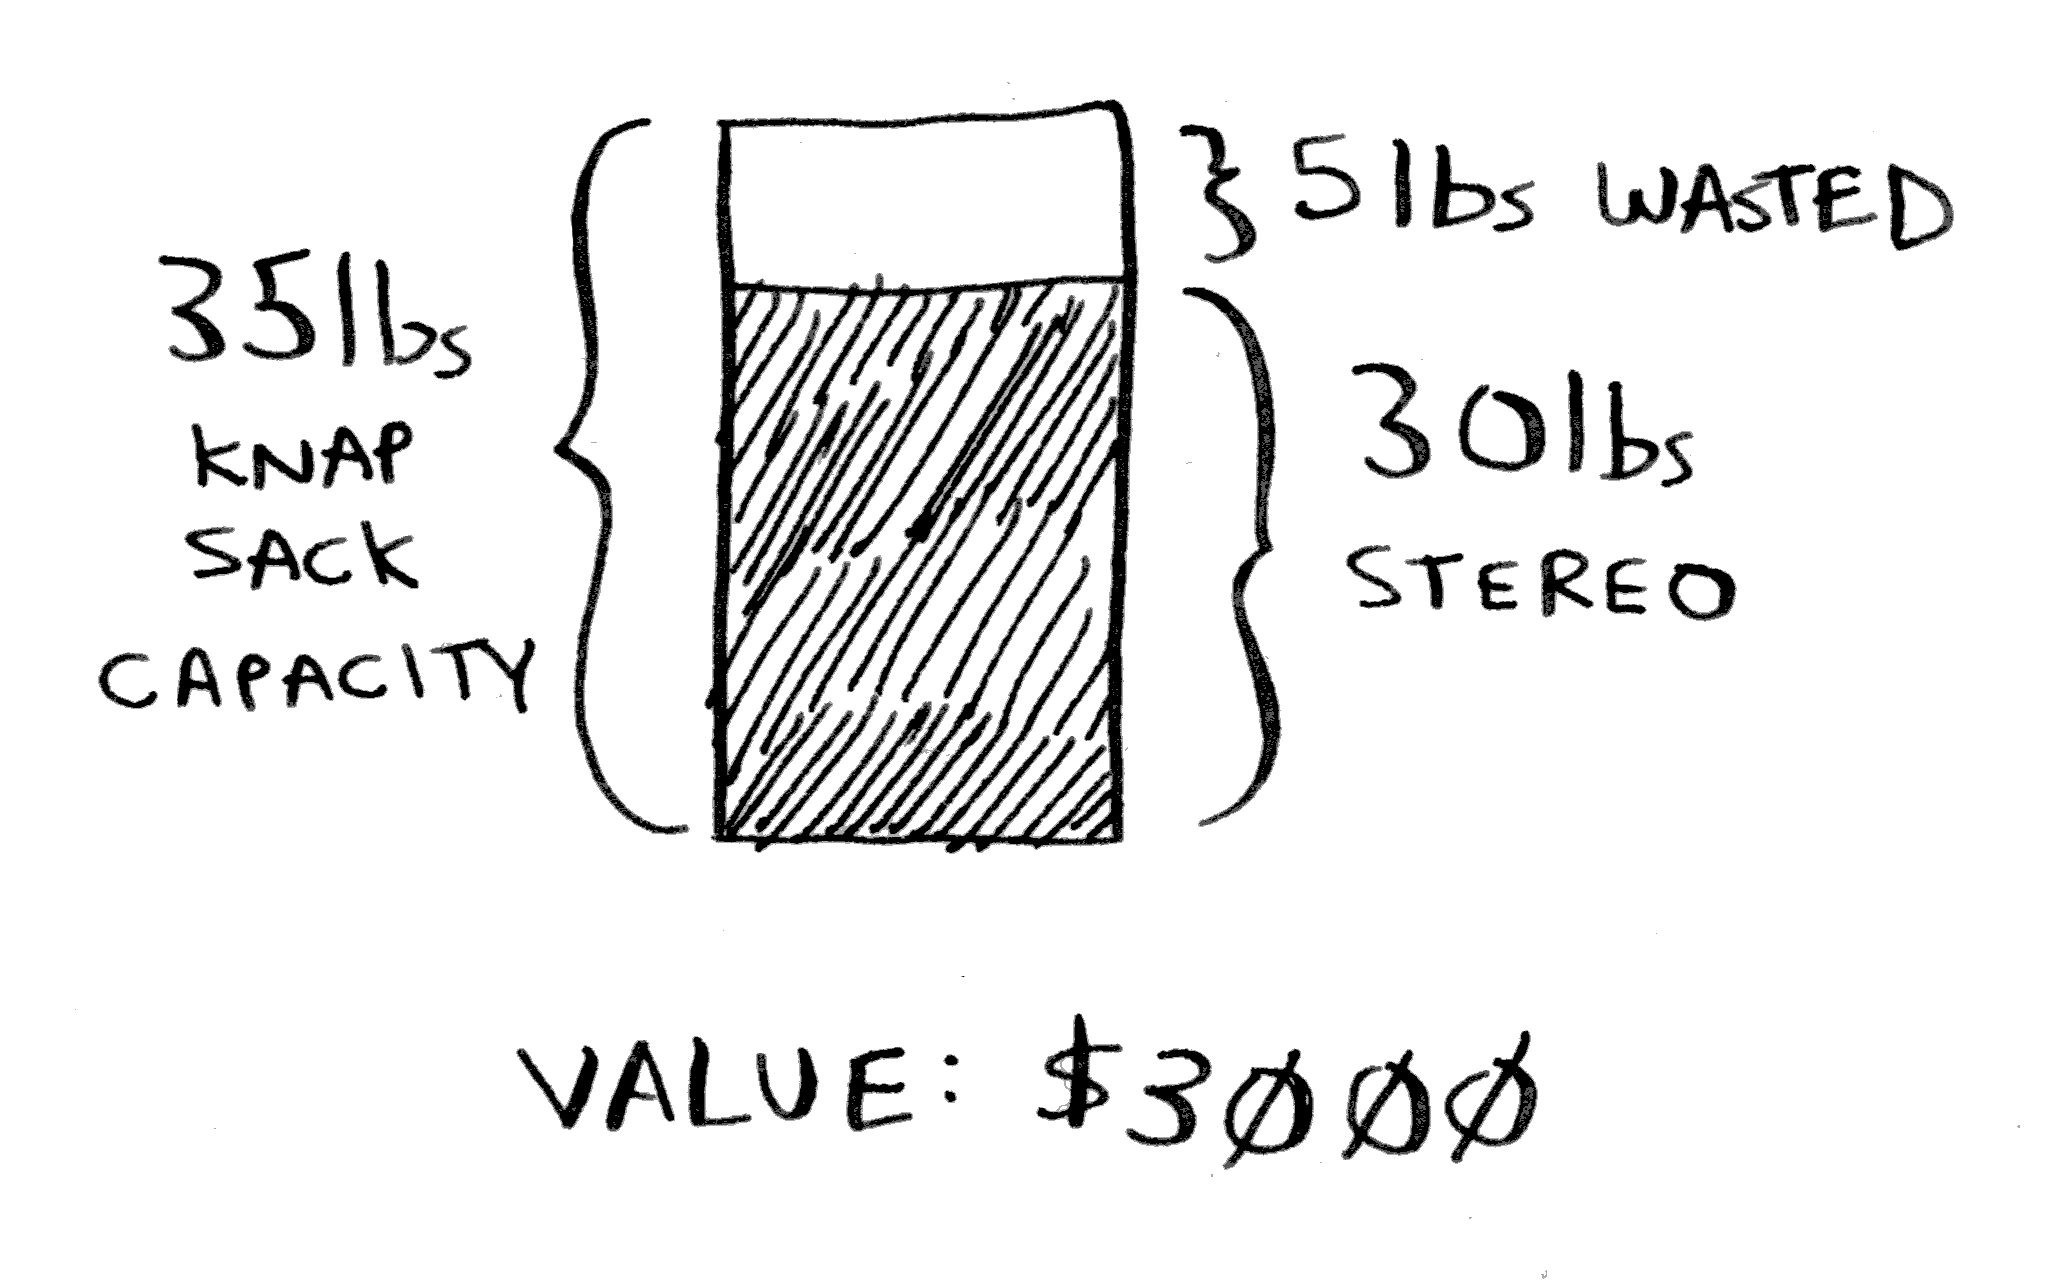 35lbs
KNAP
SACK
CAPACITY
5lbs WASTED
30lbs
STEREO
VALUE: $3000